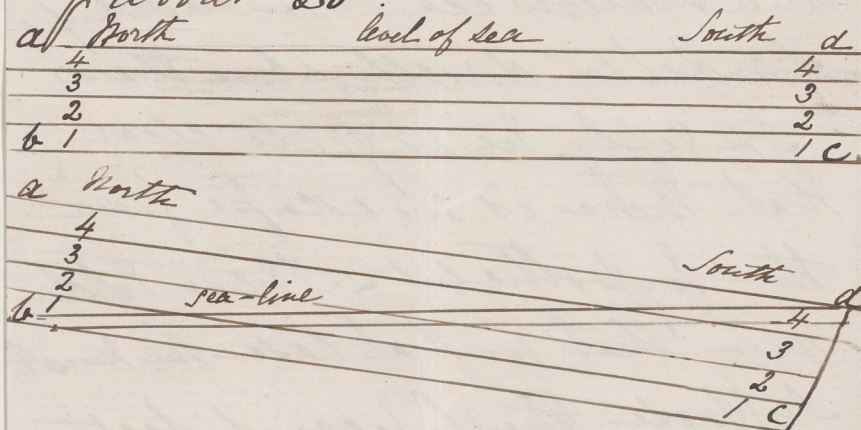 a North level of sea South d
4 4
3 3
2 2
b 1 1 c
a North
4
3 South
2 d
b 1 sea-line 4
3
2
1 c